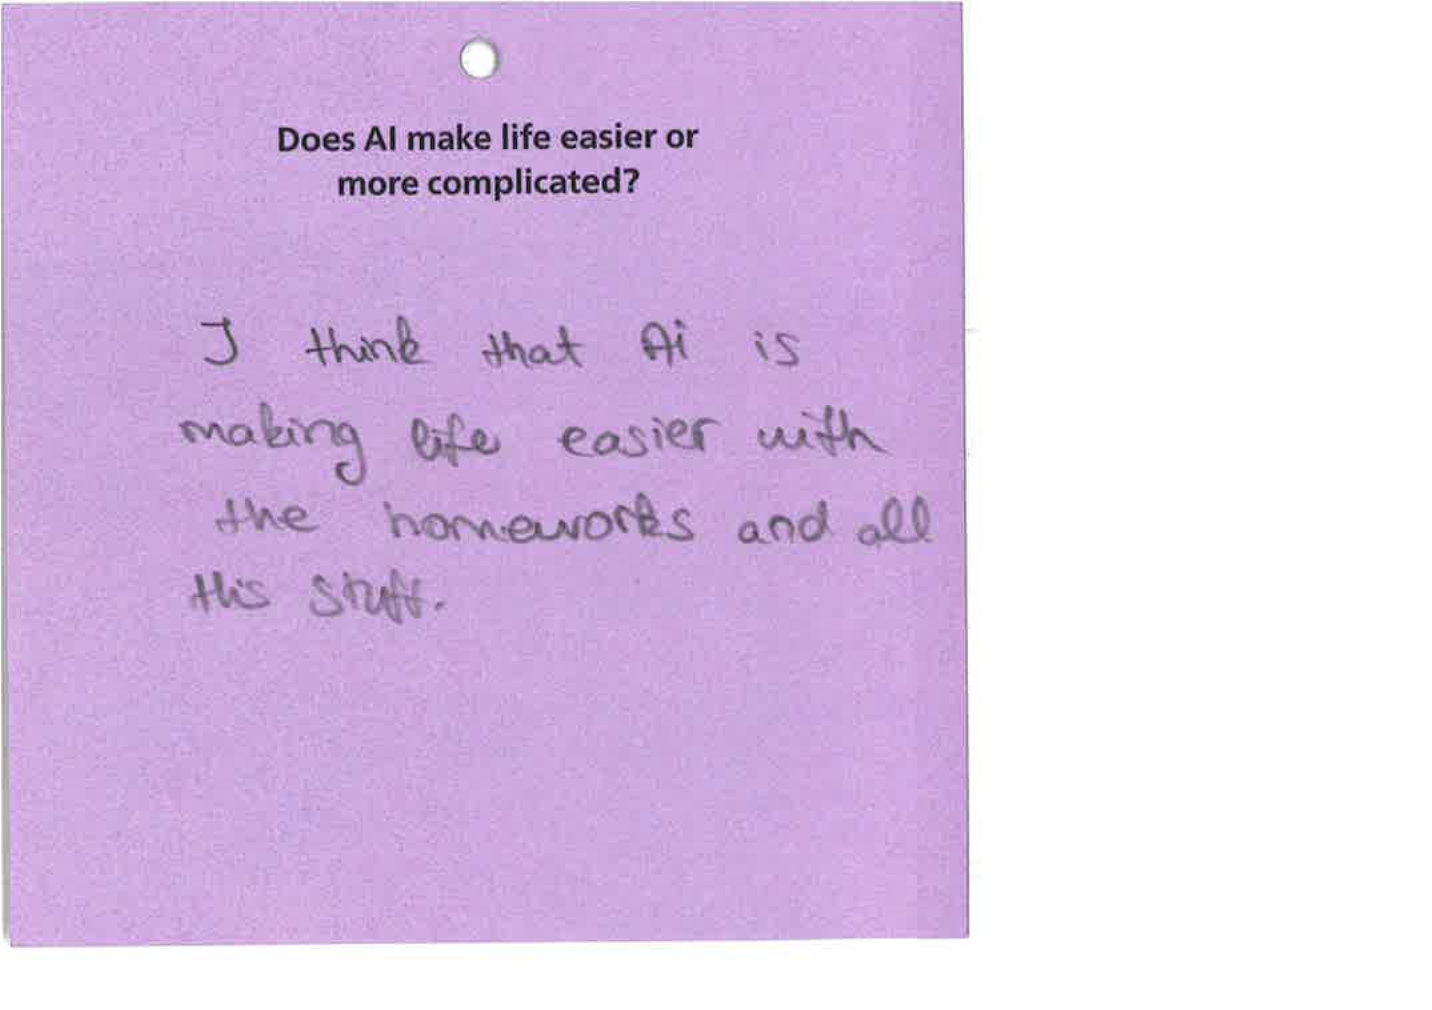 Does AI make life easier or
more complicated?
I think that Ai is
making life easier with
the homeworks and all
this stuff.